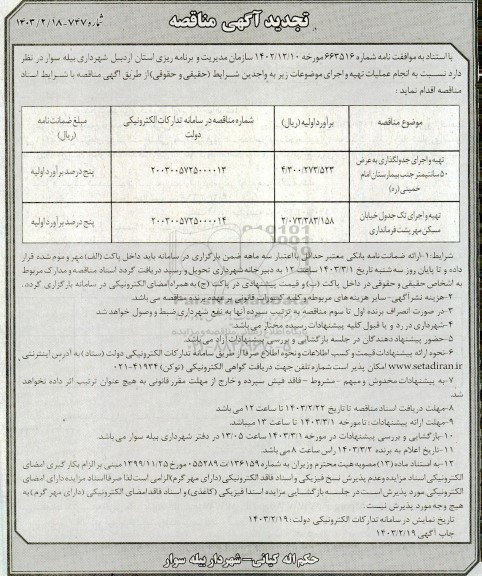 تجدید آگهی مناقصه
شماره ۷۴۷-۱۴۰۳/۲/۱۸
با استناد به موافقت نامه شماره ۶۶۳۵۱۶ مورخه ۱۴۰۲/۱۲/۱۰ سازمان مدیریت و برنامه ریزی استان اردبیل شهرداری بیله سوار در نظر
دارد نسبت به انجام عملیات تهیه و اجرای موضوعات زیر به واجدین شرایط (حقیقی و حقوقی) از طریق آگهی مناقصه با شرایط اسناد
مناقصه اقدام نماید :
موضوع مناقصه
برآورد اولیه (ریال)
شماره مناقصه در سامانه تدارکات الکترونیکی دولت
مبلغ ضمانت نامه (ریال)
تهیه و اجرای جدولگذاری به عرض ۵۰ سانتیمتر جنب بیمارستان امام خمینی (ره)
۴/۳۰۰/۲۷۳/۵۲۳
۲۰۰۳۰۰۵۷۲۵۰۰۰۰۱۳
پنج درصد برآورد اولیه
تهیه و اجرای تک جدول خیابان مسکن مهر پشت فرمانداری
۲/۰۷۳/۳۸۳/۱۵۸
۲۰۰۳۰۰۵۷۲۵۰۰۰۰۱۴
پنج درصد برآورد اولیه
شرایط: ۱-ارائه ضمانت نامه بانکی معتبر حداقل با اعتبار سه ماهه ضمن بارگزاری در سامانه باید داخل پاکت (الف) مهر و موم شده قرار
داده و تا پایان روز سه شنبه تاریخ ۱۴۰۳/۳/۱ ساعت ۱۲ به دبیرخانه شهرداری تحویل و رسید دریافت گردد اسناد مناقصه و مدارک مربوط
به اشخاص حقیقی و حقوقی در داخل پاکت (ب) و قیمت پیشنهادی در پاکت (ج) به همراه امضای الکترونیکی در سامانه بارگزاری گردد.
۲-هزینه نشر آگهی-سایر هزینه های مربوطه و کلیه کسورات قانونی بر عهده برنده مناقصه می باشد.
۳-در صورت انصراف برنده اول تا سوم مناقصه به ترتیب سپرده آنها به نفع شهرداری ضبط و وصول خواهد شد
۴-شهرداری در رد و یا قبول کلیه پیشنهادات رسیده مختار می باشد.
۵-حضور پیشنهاد دهندگان در جلسه بازگشایی و بررسی پیشنهادات آزاد می باشد.
۶-نحوه ارائه پیشنهادات قیمت و کسب اطلاعات و نحوه اطلاع صرفا از طریق سامانه تدارکات الکترونیکی دولت (ستاد) به آدرس اینترنتی
www.setadiran.ir امکان پذیر است شماره تلفن جهت دریافت گواهی الکترونیکی (توکن) ۴۱۹۳۴-۰۲۱
۷-به پیشنهادات مخدوش و مبهم - مشروط - فاقد فیش سپرده و خارج از مهلت مقرر قانونی به هیچ عنوان ترتیب اثر داده نخواهد
شد.
۸-مهلت دریافت اسناد مناقصه تا تاریخ ۱۴۰۳/۲/۲۲ تا ساعت ۱۲ می باشد
۹-مهلت ارائه پیشنهادات: تا مورخه ۱۴۰۳/۳/۱ تا ساعت ۱۳ میباشد.
۱۰-بازگشایی و بررسی پیشنهادات در مورخه ۱۴۰۳/۳/۱ ساعت ۱۳/۰۵ در دفتر شهرداری بیله سوار می باشد.
۱۱-تاریخ اعلام به برنده ۱۴۰۳/۳/۲ راس ساعت ۸ می باشد.
۱۲-به استناد ماده (۱۳) مصوبه هیئت محترم وزیران به شماره ۱۳۶۱۵۹/ت ۵۵۲۸۹ مورخ ۱۳۹۹/۱۱/۲۵ مبنی بر الزام بکارگیری امضای
الکترونیکی اسناد مزایده و عدم پذیرش نسخ فیزیکی و اسناد فاقد الکترونیکی (دارای مهر گرم) الزامی است لذا صرفا اسناد مزایده دارای امضای
الکترونیکی مورد پذیرش است در جلسه بازگشایی مزایده اسناد فیزیکی (کاغذی) و اسناد فاقد امضای الکترونیکی (دارای مهر گرم) به
هیچ وجه مورد پذیرش نیست.
تاریخ نمایش در سامانه تدارکات الکترونیکی دولت: ۱۴۰۳/۲/۱۹
چاپ آگهی ۱۴۰۳/۲/۱۹
حکم اله کیانی-شهردار بیله سوار